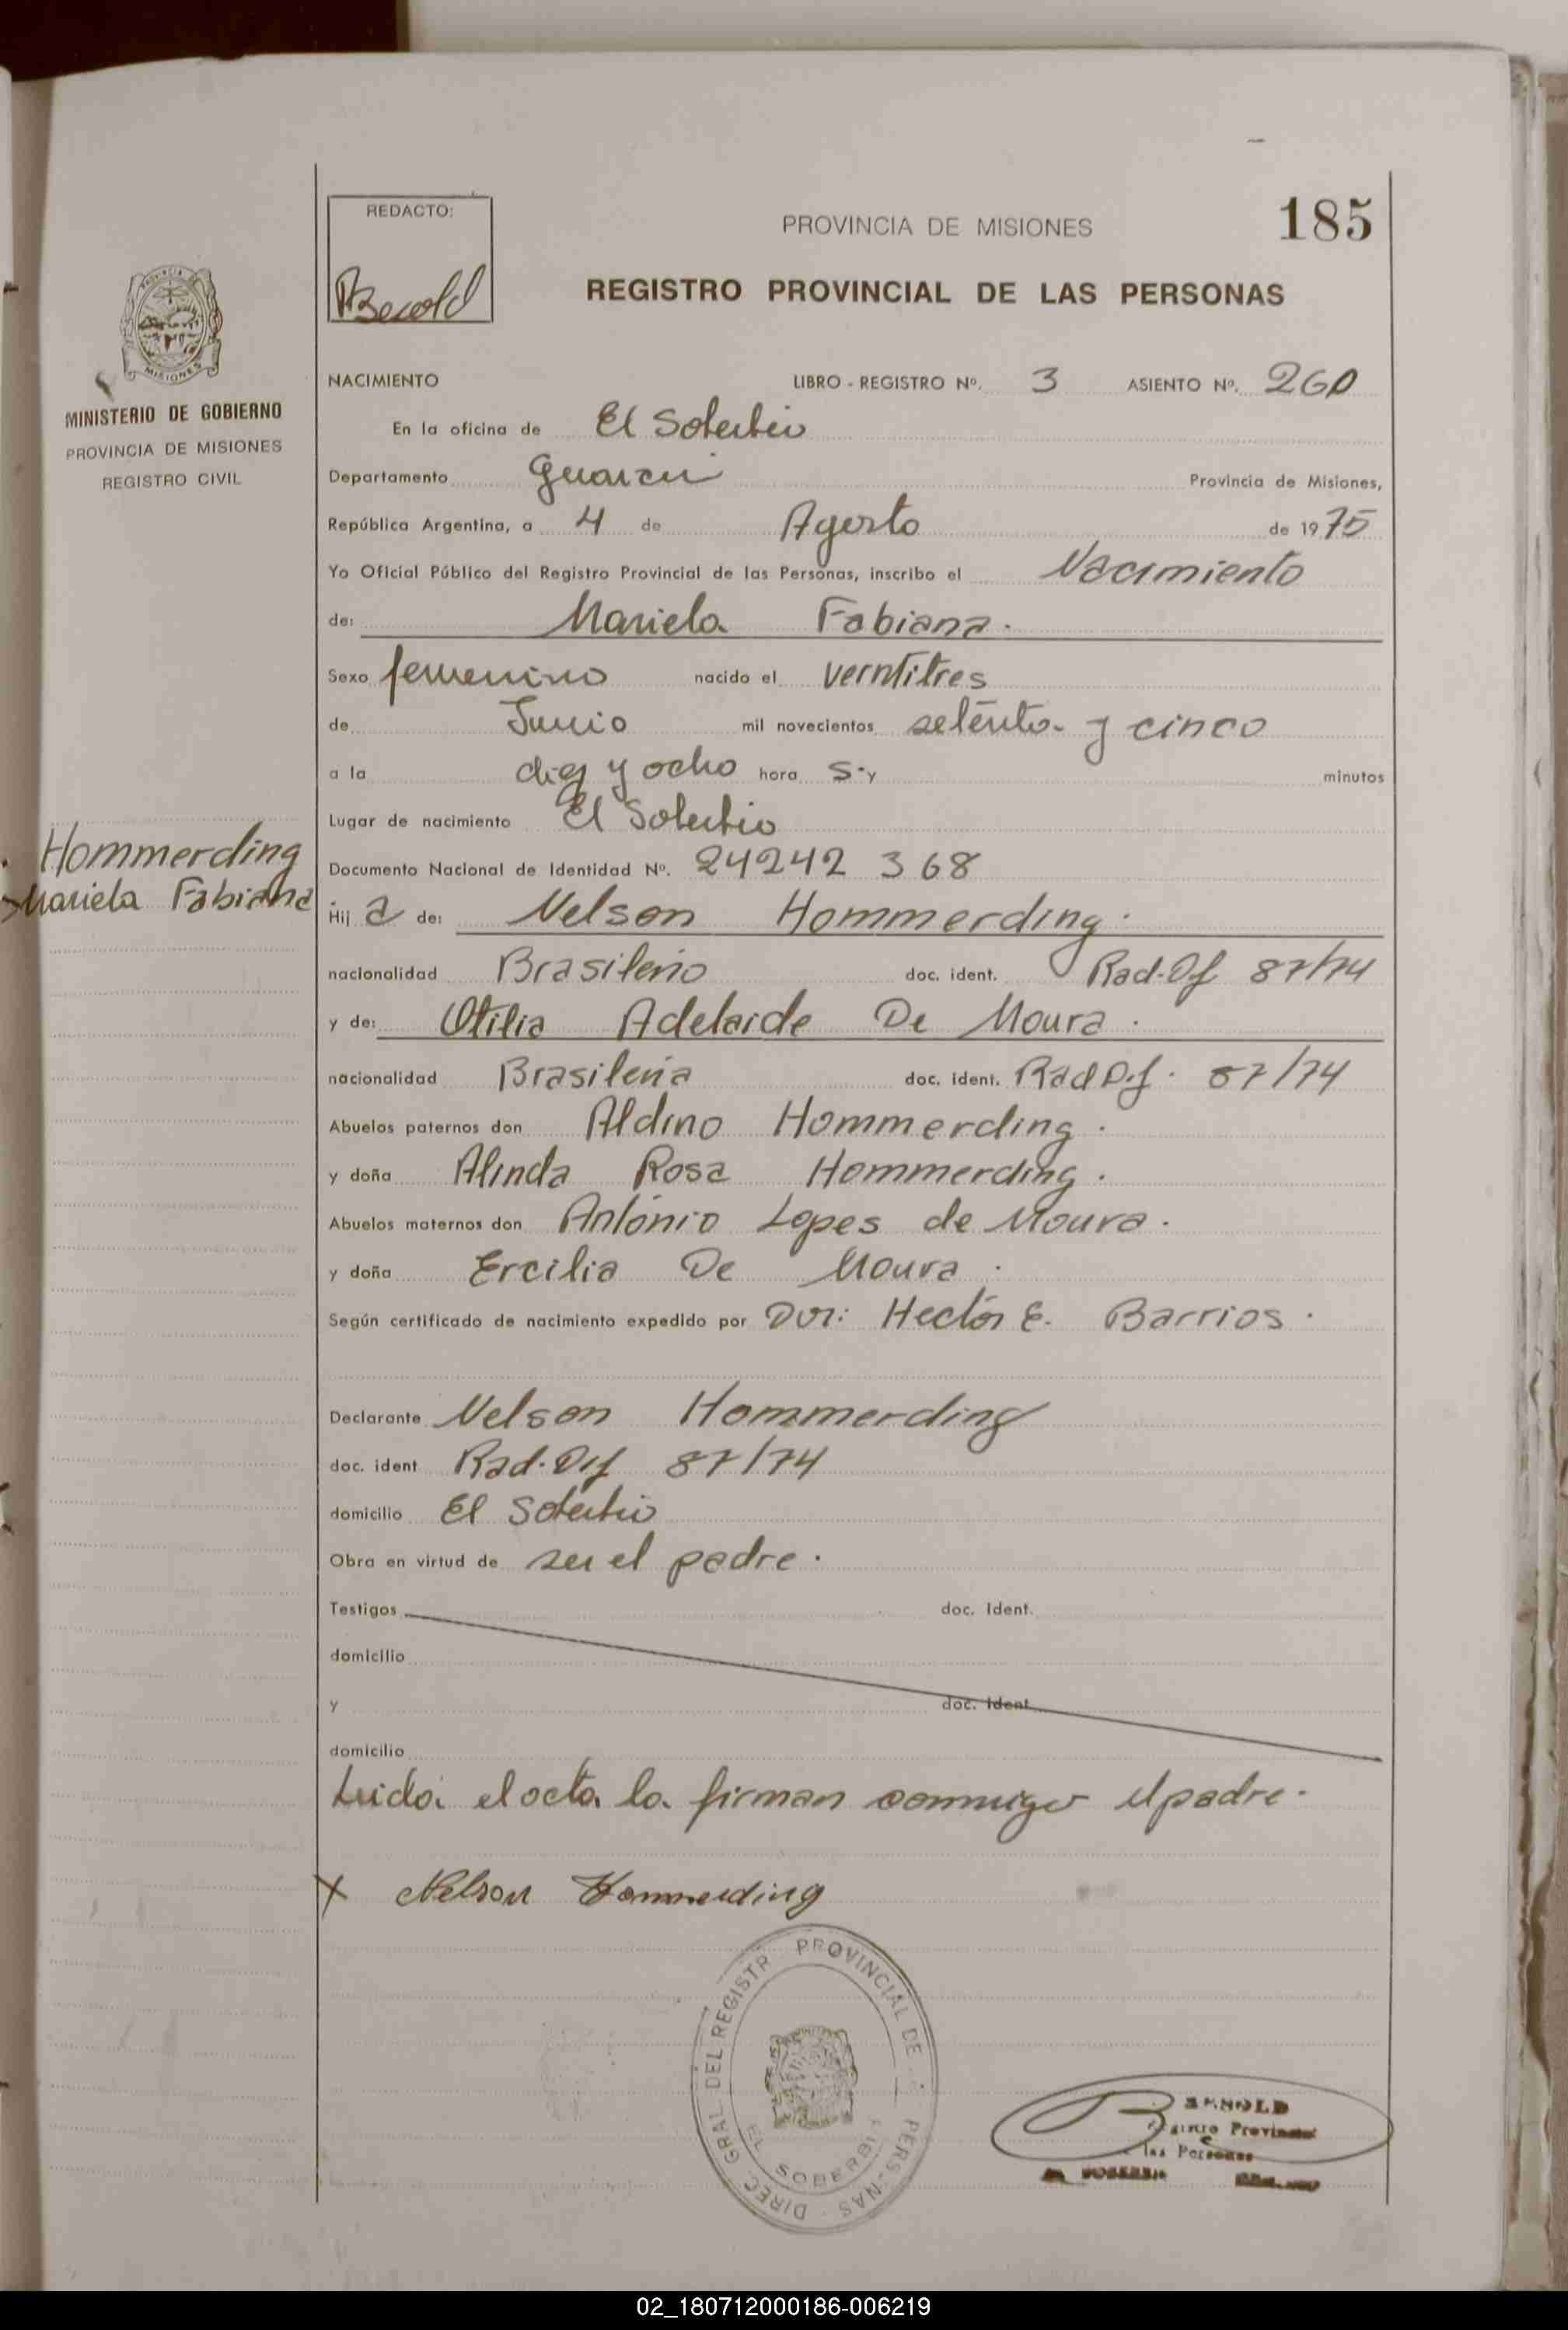 REDACTO:
PROVINCIA DE MISIONES
185
REGISTRO PROVINCIAL DE LAS PERSONAS
MISIONES
MINISTERIO DE GOBIERNO
PROVINCIA DE MISIONES
REGISTRO CIVIL
NACIMIENTO LIBRO - REGISTRO Nº. 3 ASIENTO Nº. 260
En la oficina de El Soberbio
Departamento Guarani Provincia de Misiones,
República Argentina, a 4 de Agosto de 1975
Yo Oficial Público del Registro Provincial de las Personas, inscribo el Nacimiento
de: Mariela Fabiana.
Sexo femenino nacido el veintitres
de Junio mil novecientos setenta y cinco
a la diez y ocho hora s. y minutos
Lugar de nacimiento El Soberbio
Hommerding
Mariela Fabiana
Documento Nacional de Identidad Nº. 24242 368
Hij a de: Nelson Hommerding.
nacionalidad Brasileño doc. ident. Rad. Def 87/74
y de: Otilia Adelaide De Moura.
nacionalidad Brasileña doc. ident. Rad Def. 87/74
Abuelos paternos don Aldino Hommerding.
y doña Alinda Rosa Hommerding.
Abuelos maternos don António Lopes de Moura.
y doña Ercilia De Moura.
Según certificado de nacimiento expedido por Dor: Hectór E. Barrios.
Declarante Nelson Hommerding
doc. ident Rad. Def 87/74
domicilio El Soberbio
Obra en virtud de ser el padre.
Testigos doc. Ident.
domicilio
y doc. Ident
domicilio
Leida el acta la firman conmigo el padre.
X Nelson Hommerding
DIREC. GRAL DEL REGISTR PROVINCIAL DE PERS NAS
EL SOBERBI
Provincial
las Personas
02_180712000186-006219